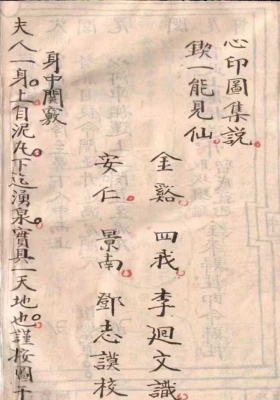 心印圖集說
鍥一能見仙
金谿 四我 李廻文 識
安仁 景南 鄧志謨 校
身中關竅
夫人一身上自泥丸下迄湧泉實具一天地也謹按圖于